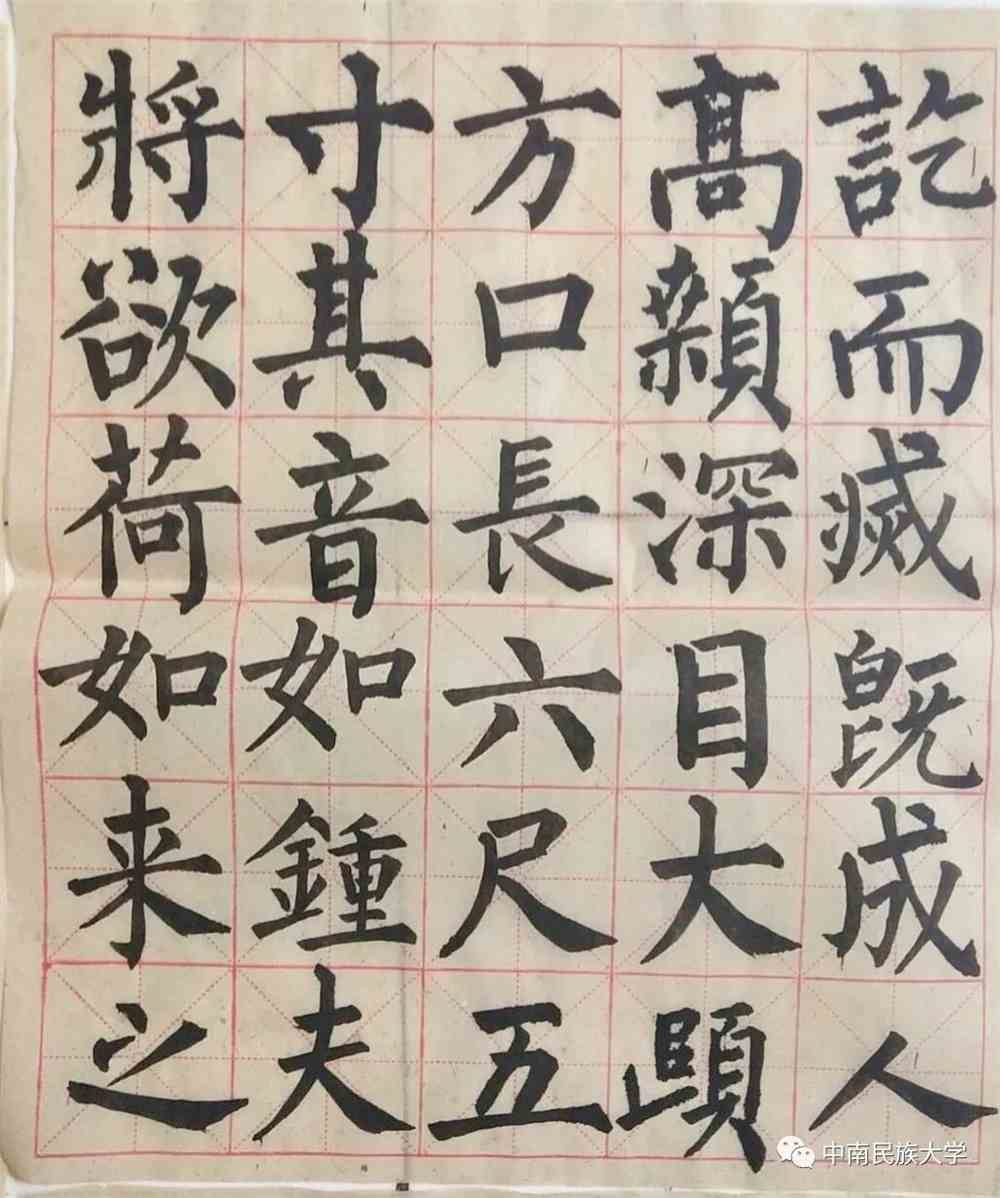 訖而滅既成人
髙顙深目大頤
方口長六尺五
寸其音如鍾夫
將欲荷如来之
中南民族大学